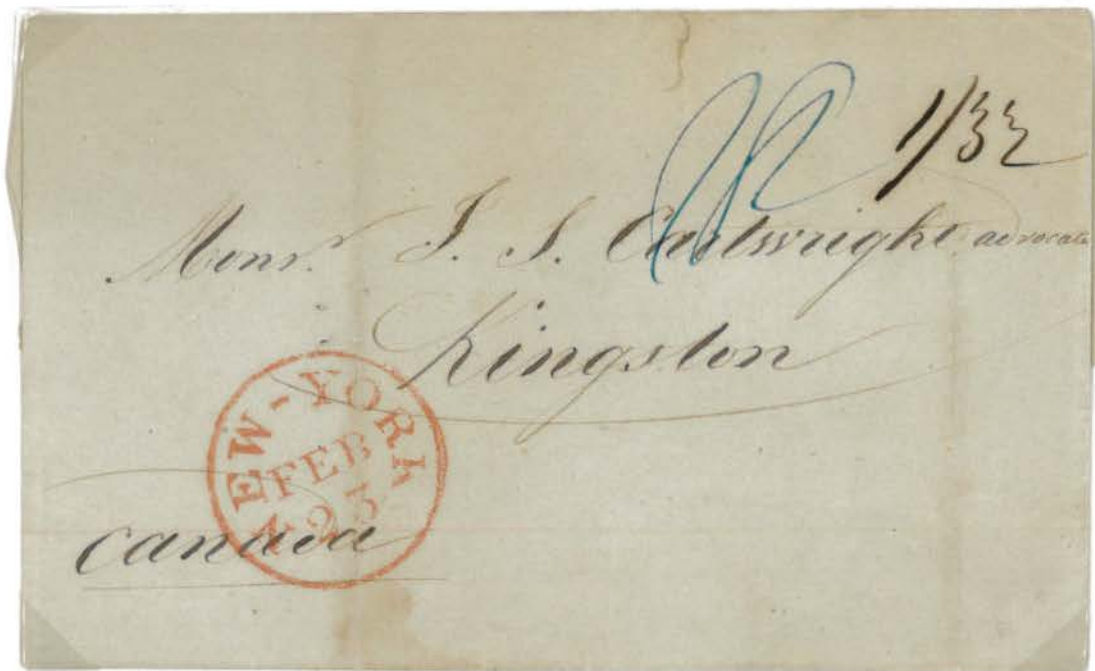 1/3½
Monr. J. S. Cartwright advocate
Kingston
NEW-YORK
FEB
23
canada